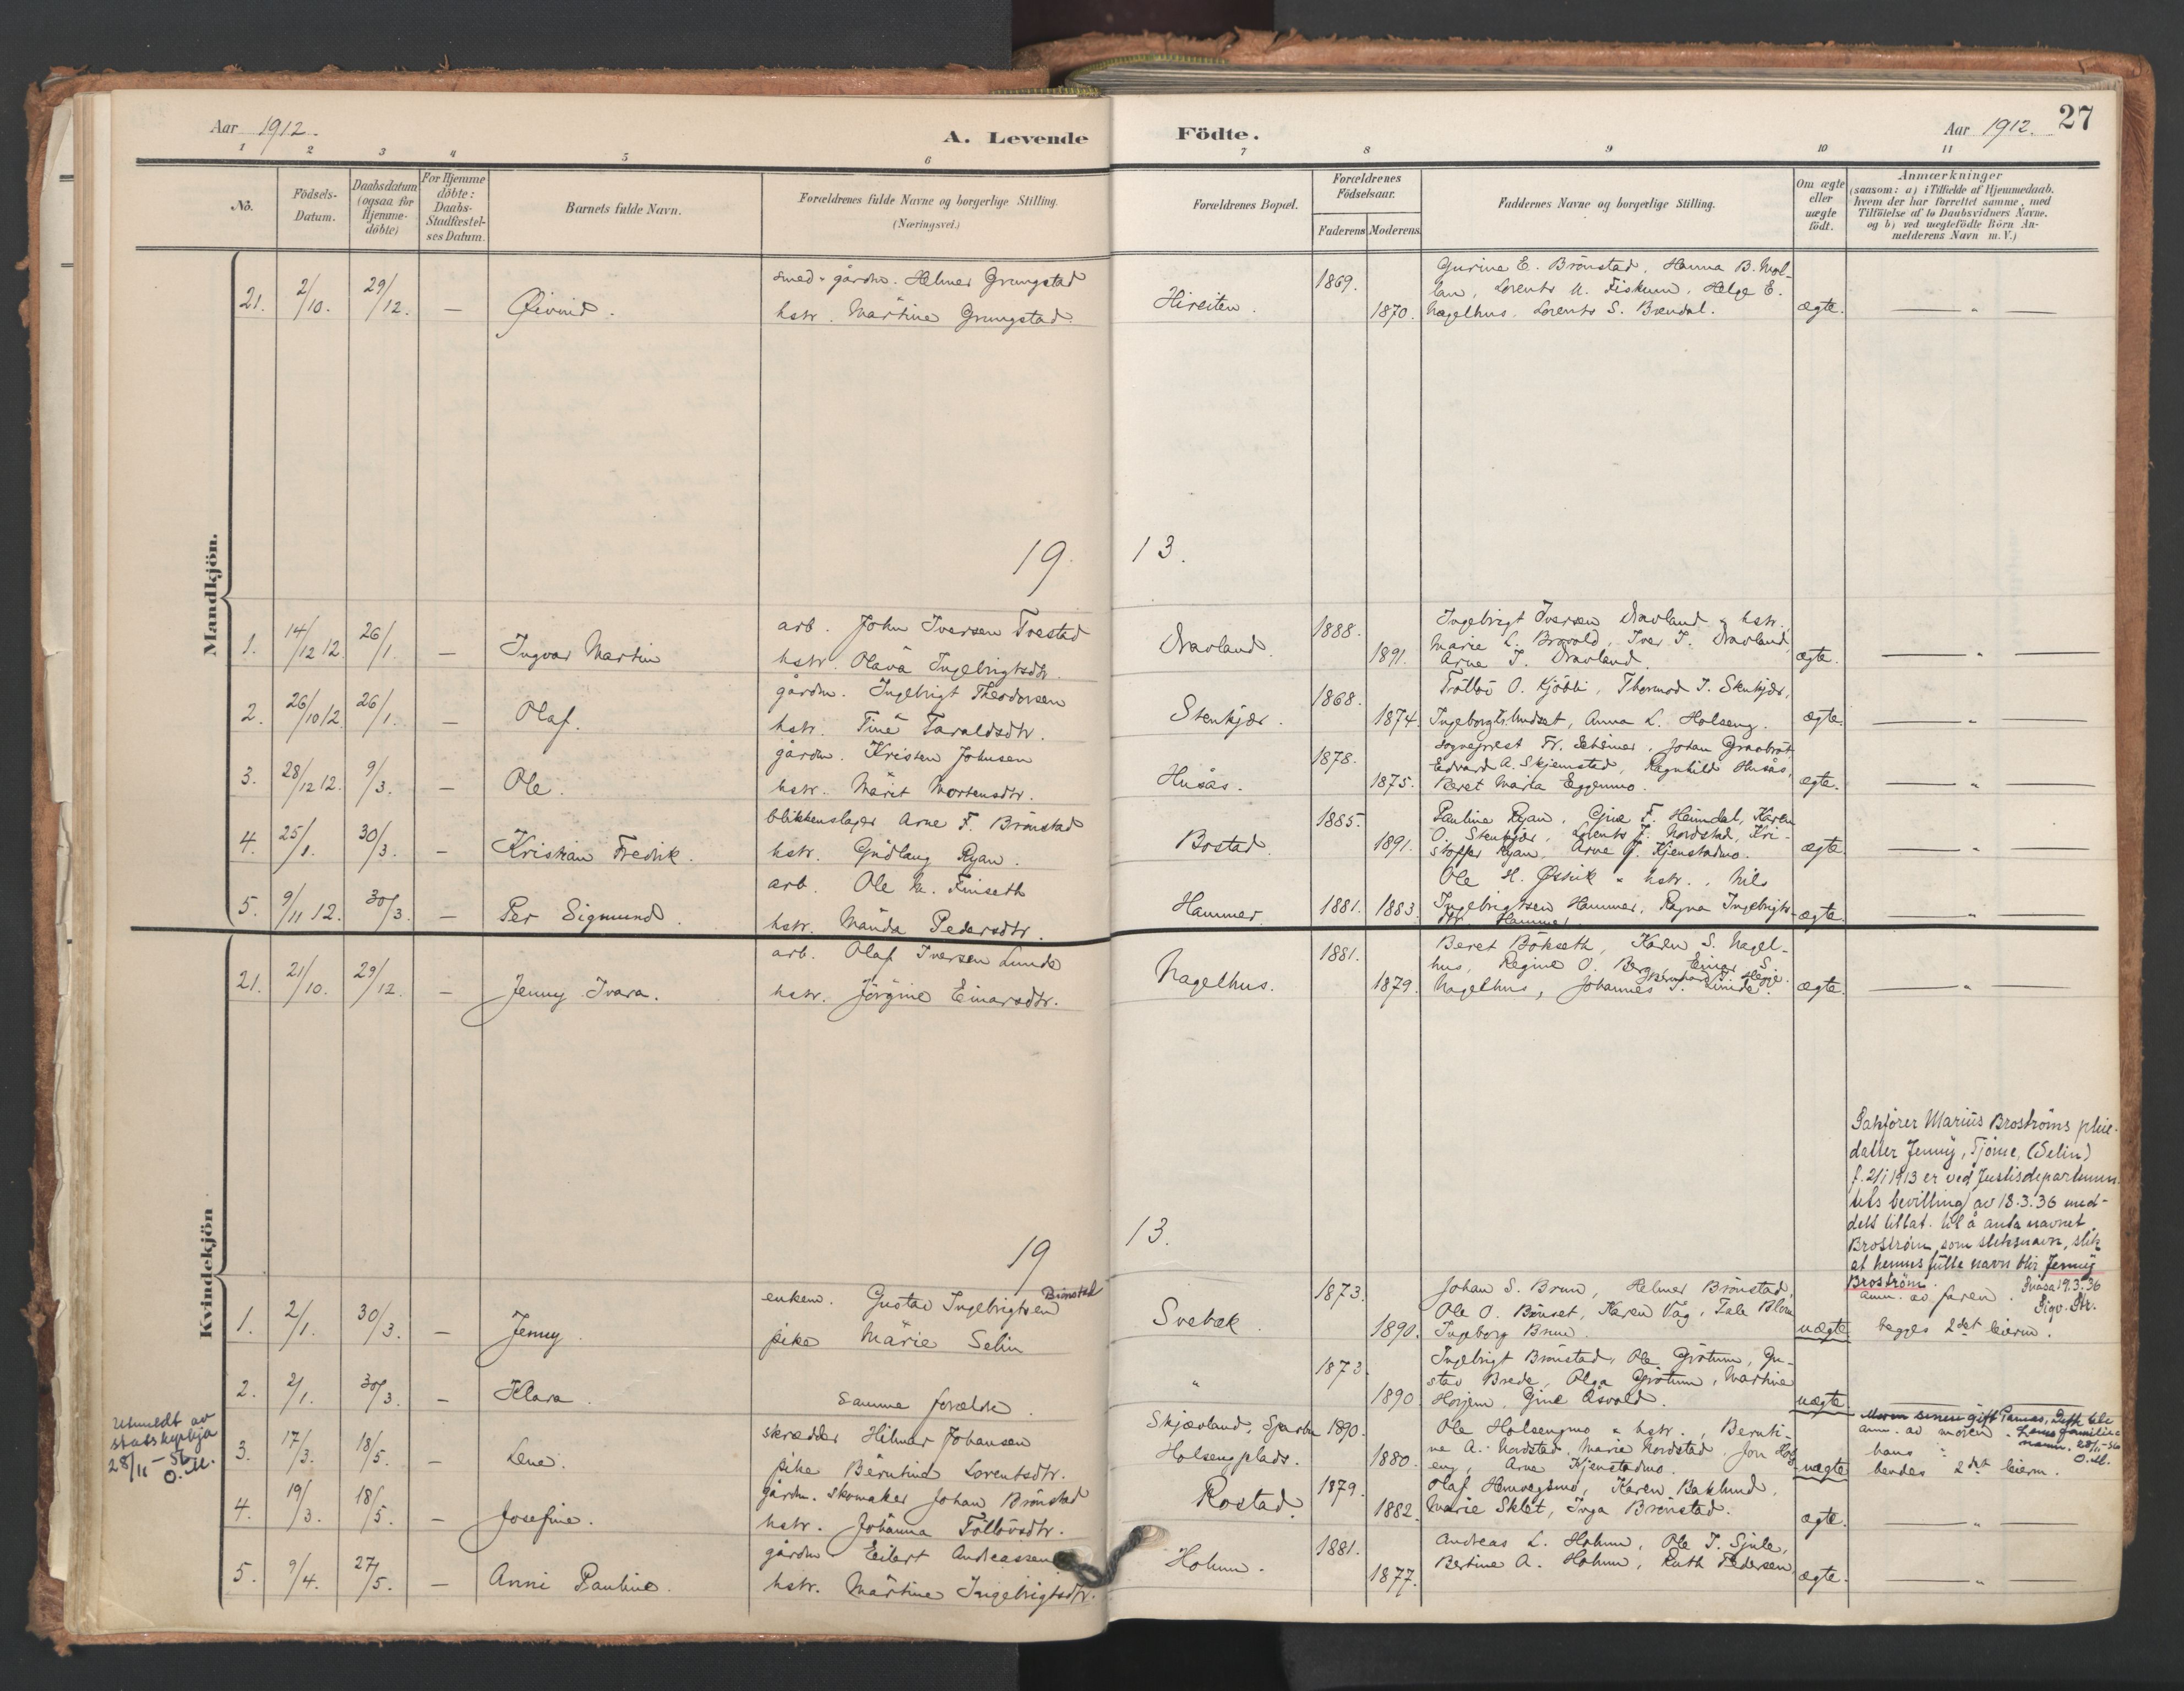 Aar 1912.
A. Levende
Födte.
Aar 1912.
27
1 2 3 4 5 6 7 8 9 10 11
No.
Födsels-Datum.
Daabsdatum (ogsaa for Hjemme-döbte)
For Hjemme döbte: Daabs-Stadfæstel-ses Datum.
Barnets fulde Navn.
Forældrenes fulde Navne og borgerlige Stilling.
(Næringsvei.)
Forældrenes Bopæl.
Forældrenes Födselsaar.
Faderens Moderens
Faddernes Navne og borgerlige Stilling.
Om ægte eller uægte födt.
Anmærkninger
(saasom: a) i Tilfælde af Hjemmedaab.
hvem der har forrettet samme, med
Tilföielse af to Daabsvidners Navne.
og b) ved uægtefödte Börn An-
melderens Navn m.V.)
Mandkjön.
21. 2/10. 29/12. — Øivind.
smed & gårdm. Helmer Grungstad
hstr. Martine Grungstad.
Hireiten. 1869. 1870.
Gurine E. Brönstad, Hanna B. Mol-
lan, Lorents M. Fiskum, Helge E.
Nagelhus, Lorents S. Brendal.
ægte. — " —
19. 13.
1. 14/12 12. 26/1. — Ingvar Martin
arb. John Iversen Tvestad
hstr. Olava Ingebrigtsdtr.
Dravland. 1888. 1891.
Ingebrigt Iversen Dravland & hstr.,
Marie L. Bravold, Iver J. Dravland,
Arne J. Dravland.
ægte. — " —
2. 26/10 12 26/1. — Olaf.
gårdm. Ingebrigt Theodorsen
hstr. Tine Taraldsdtr.
Stenkjær. 1868. 1874.
O. Kjöbli, Thormod I. Stenkjær,
Anna L. Holseng.
ægte. — " —
3. 28/12 12. 9/3. — Ole.
gårdm. Kristen Johnsen
hstr. Marit Mortensdtr.
Husås. 1878. 1875.
sogneprest Fr. Johan Graabröt
Edvard A. Skjemstad, Ragnhild Husås,
Beret Maria Eggenmo.
ægte. — " —
4. 25/1. 30/3. — Kristian Fredrik.
blikkenslager Arne F. Brönstad
hstr. Gudlaug Ryan.
Bostad. 1885. 1891.
Pauline Ryan, Gine F. Heimdal, Karen
O. Stenkjær, Lorents J. Nordstad, Kri-
stoffer Ryan, Arne J. Kjenstadmo.
ægte. — " —
5. 9/11 12. 30/3. — Per Sigmund.
arb. Ole M. Finseth
hstr. Manda Pedersdtr.
Hammer. 1881. 1883.
Ole H. Østvik & hstr., Nils
Ingebrigtsen Hammer, Ragna Ingebrigts-
dtr. Hammer.
ægte. — " —
Kvindekjön
21. 21/10. 29/12. — Jenny Ivara.
arb. Olaf Iversen Lunde
hstr. Jörgine Einarsdtr.
Nagelhus. 1881. 1879.
Beret Bökseth, Karen S. Nagel-
hus, Regine O. Berg, Einar S.
Bernhard J. Hegge.
Nagelhus, Johannes I. Lunde.
ægte. — " —
19 13.
Sakfører Marius Broströms pleie-
datter Jenny, Tjöme, (Selin)
f. 2/1 1913 er ved Justisdepartemen-
tets bevilling av 18.3.36 med-
delt tillat. til å anta navnet
Broström som slektsnavn, slik
at hennes fulle navn blir Jenny
Broström. Snåsa 19.3.36
Sigv.
1. 2/1. 30/3. — Jenny.
enkem. Gustav Ingebrigtsen Brönstad
pike Marie Selin
Svebak. 1873. 1890.
Johan S. Brun, Helmer Brönstad,
Ole O. Bönset, Karen Våg,
Ingeborg Brun.
uægte.
anm. av faren.
begges 2det leierm.
2. 2/1. 30/3. — Klara.
samme forældre.
" 1873. 1890
Ingebrigt Brönstad, Ole Gjötum, Gu-
stav Brede, Olga Gjötum, Martine
Horjem, Gine Åsvold.
uægte
Utmeldt av
statskyrkja
28/11 - 56
O.M.
3. 17/3. 18/5. — Lene.
skrædder Hilmar Johansen
pike Berntine Lorentsdtr.
Skjævland, Sparbu
Holseng plads. 1890. 1880.
Ole Holsengmo & hstr., Bernti-
ne A. Nordstad, Marie Nordstad, Jon Hols-
eng, Arne Kjenstadmo.
uægte
anm. av moren.
hans "
hendes 2det leierm.
28/11-56
O.M.
4. 19/3. 18/5. — Josefine.
gårdm. skomaker Johan Brönstad
hstr. Johanna Tollövsdtr.
Rostad. 1879. 1882.
Olaf Karen Baklund,
Marie Sklet, Inga Brönstad.
ægte. — " —
5. 9/4. 27/5. — Anni Pauline.
gårdm. Eilert Andreassen
hstr. Martine Ingebrigtsdtr.
Holum. 1881. 1877.
Andreas L. Holum, Ole J. Sjule,
Bertine A. Holum, Ruth Pedersen
ægte. — " —